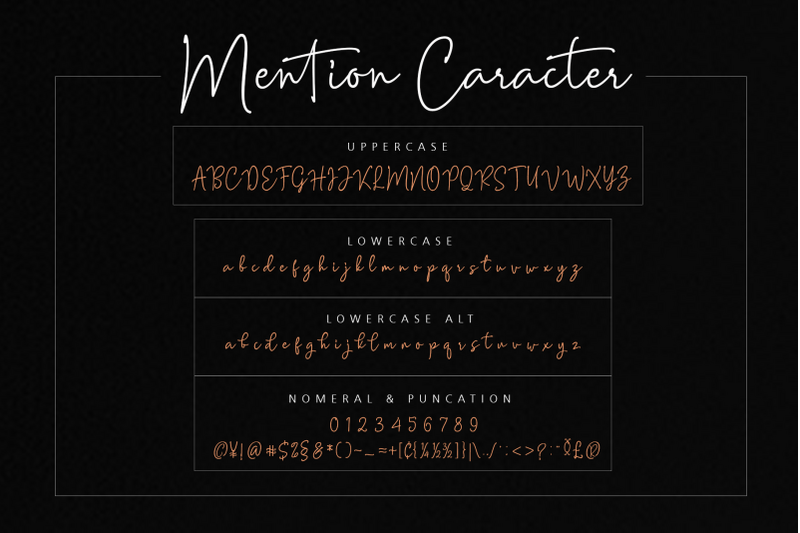 Mention Caracter
UPPERCASE
ABCDEFGHIJKLMNOPQRSTUVWXYZ
LOWERCASE
abcdefghijklmnopqrstuvwxyz
LOWERCASE ALT
abcdefghijklmnopqrstuvwxyz
NOMERAL & PUNCATION
0123456789
©¥!@#$%§&*()~_=+[₵{¼½¾]}|\../